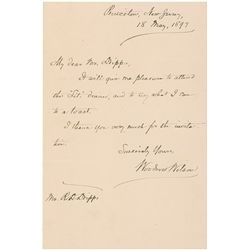 Princeton, New Jersey,
18 May, 1897
My dear Mr. Bripp,
It will give me pleasure to attend
the "Lit" dinner, and to say what I can
to a toast.
I thank you very much for the invita-
tion.
Sincerely Yours,
Woodrow Wilson
Mr. R. D. Bripp